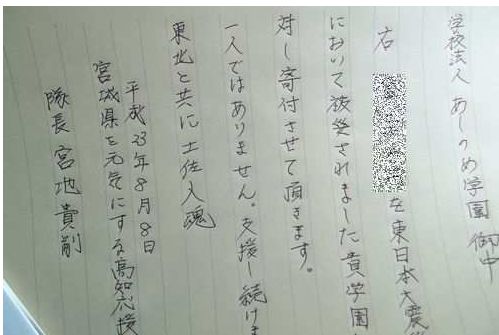 学校法人 あしのめ学園 御中
右 を東日本大震
において被災されました貴学園
対し寄付させて頂きます。
一人ではありません。支援し続けま
東北と共に土佐入魂
平成23年8月8日
宮城県を元気にする高知応援
隊長 宮地貴嗣